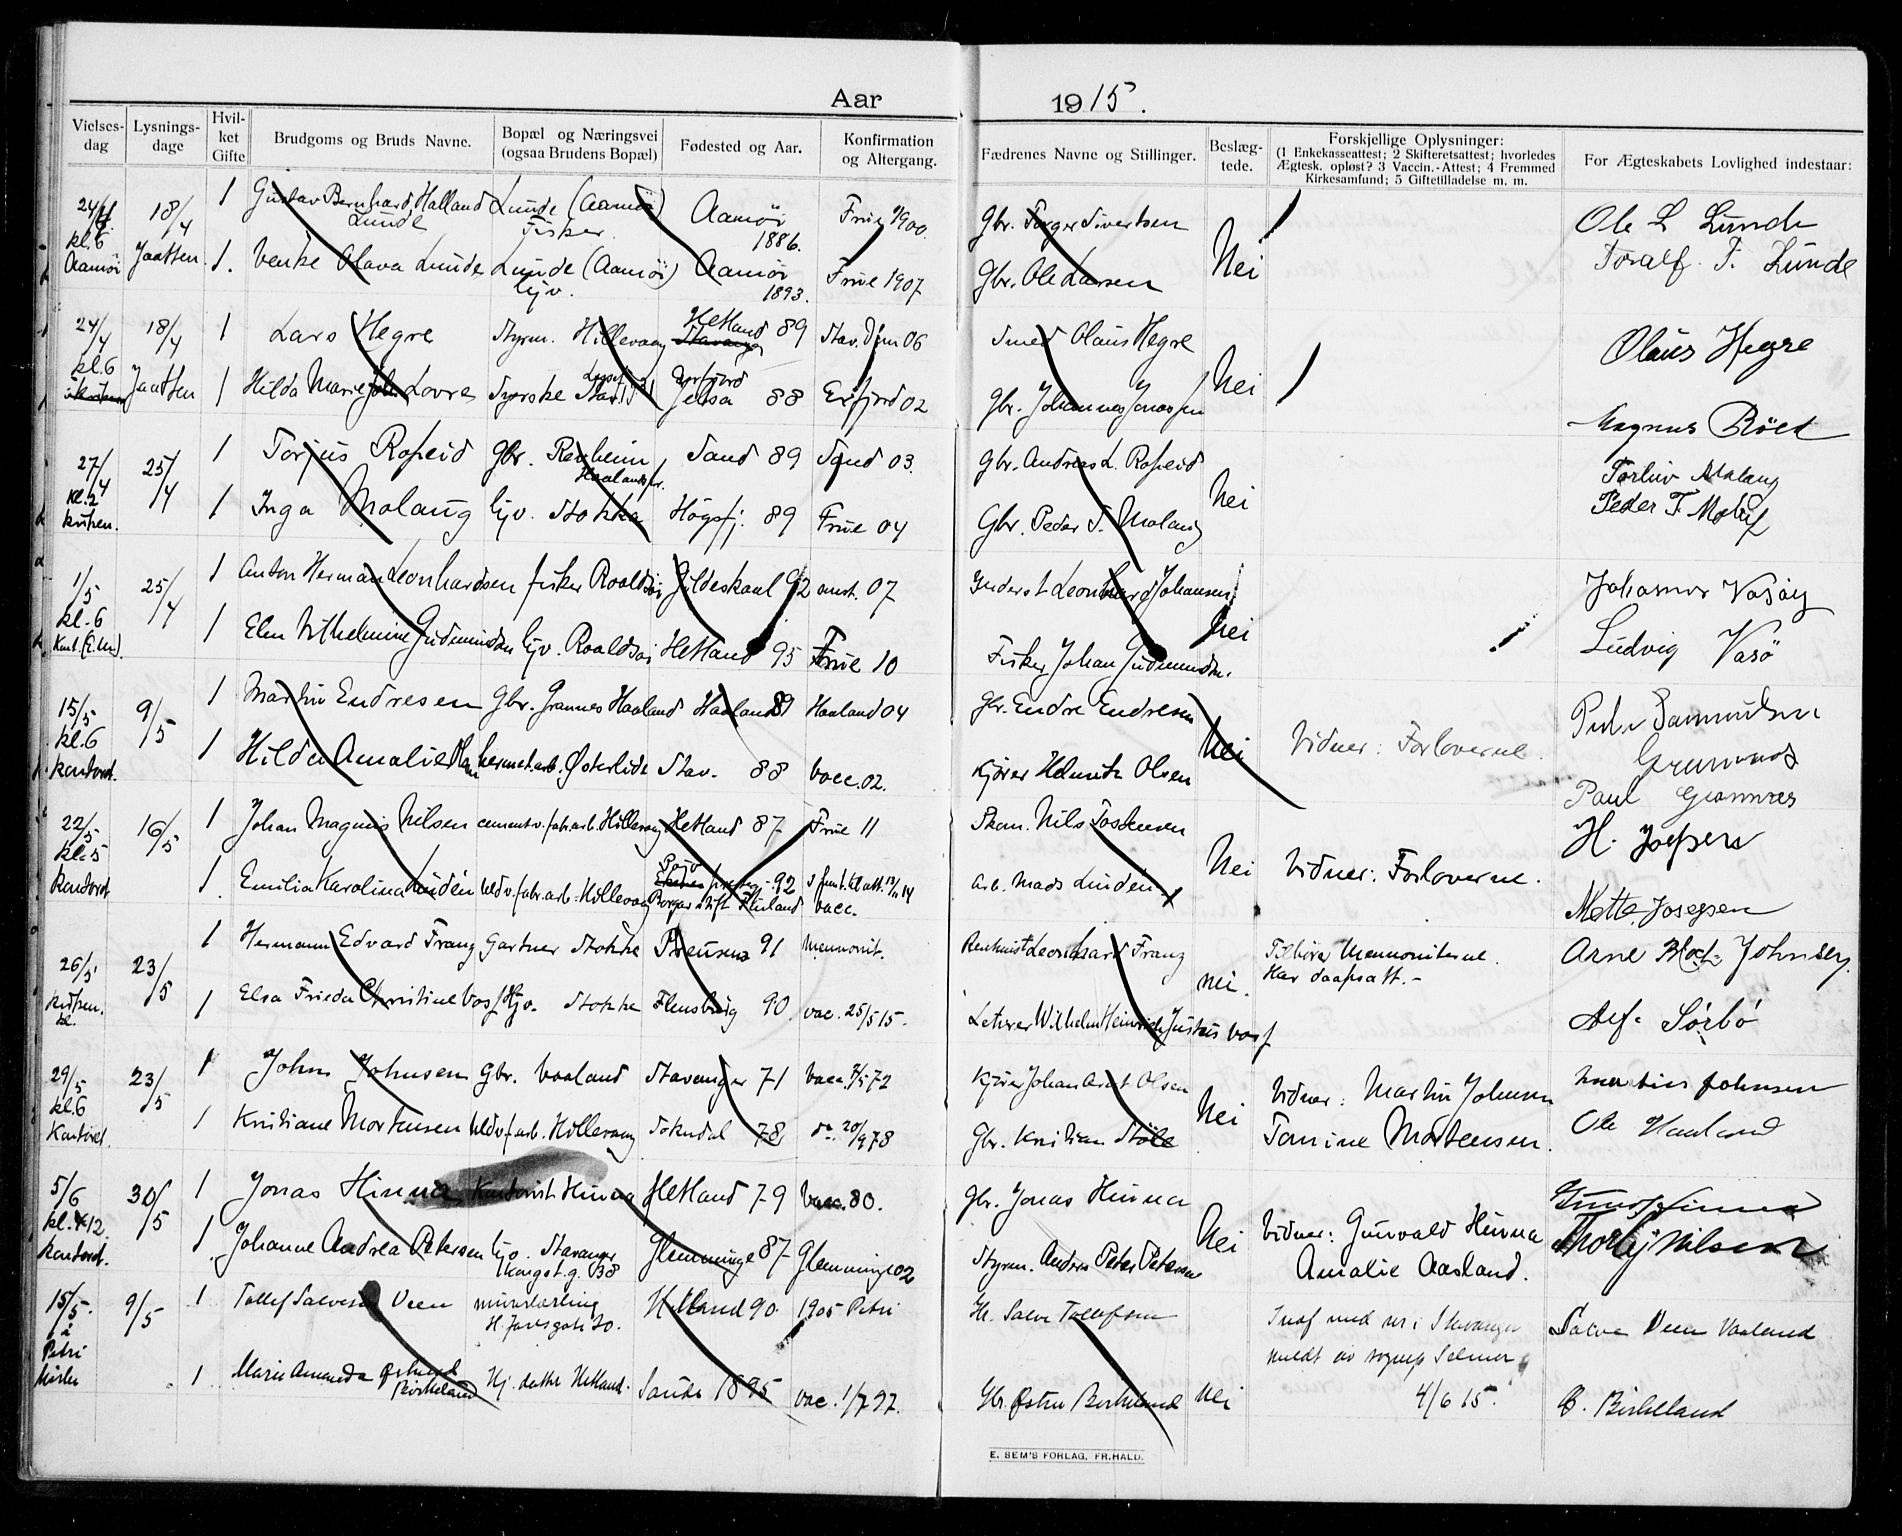 Aar 1915.
Vielses-dag
Lysnings-dage
Hvil-ket Gifte
Brudgoms og Bruds Navne.
Bopæl og Næringsvei (ogsaa Brudens Bopæl)
Fødested og Aar.
Konfirmation og Altergang.
Fædrenes Navne og Stillinger.
Beslæg-tede.
Forskjellige Oplysninger: (1 Enkekasseattest; 2 Skifteretsattest; hvorledes Ægtesk. opløst? 3 Vaccin.-Attest; 4 Fremmed Kirkesamfund; 5 Giftetilladelse m. m.
For Ægteskabets Lovlighed indestaar:
24/4 kl. 6 Aamøi 18/4 Jaatten 1 Gustav Bernhard Halland Lunde Lunde (Aamøi) Fisker Aamøi 1886. Frue 1900. Gbr. Torger Sivertsen Nei Ole L Lunde
1. Venke Olava Lunde Lunde (Aamøi) hjv. Aamøi 1893. Frue 1907 Gbr. Ole Larsen Toralf T. Lunde
24/4 kl. 6 18/4 Jaatten 1 Lars Hegre Styrm. Hillevaag Hetland 89 Stav. Dom 06 Smed Olaus Hegre Nei Olaus Hegre
1 Hilda Marie Lovra Syerske Jelsa 88 Erfjord 02 Gbr. Johannes Jonassen Magnus Röed
27/4 kl. 2 kirken. 25/4 1 Torjus Ropeid Gbr. Revheim Haaland Sand 89 Sand 03. Gbr. Andreas L. Ropeid Nei Torleiv Malaug
1 Inga Molaug hjv. Stokka Høgsfj. 89 Frue 04 Gbr. Peder T. Molaug Peder T. Molaug
1/5 kl. 6 25/4 1 Anton Herman Leonhardsen fisker Roaldsøi Gildeskaal 92 amst. 07 Inderst Leonhard Johansen Nei Johannes Vasøy
1 Elen Wilhelmine Gudmundsen hjv. Roaldsøi Hetland 95 Frue 10 Fisker Johan Gudmundsen. Ludvig Vasö
15/5 kl. 6 kontoret. 9/5 1 Martin Endresen Gbr. Grannes Haaland Haaland 89 Haaland 04 Gbr. Endre Endresen Nei Vidner: Forloverne. Peder Samuelsen Grannes
1 Hilda Amalie hermet.arb. Østerlide Stav. 88 Vacc. 02. Kjører Helmik Olsen Paul Grannes
22/5 kl. 5 Kontoret 16/5 1 Johan Magnus Nilsen cementv.fab.arb. Hillevaag Hetland 87 Frue 11 Nils Nei Vidner: Forloverne. H. Josefsen
1. Emilia Karolina Lindén uldv.fabr.arb. Hillevaag Borgå stift Finland 92 vacc. Arb. Mads Lindén Mette Josefsen
26/5 kirken. 23/5 1 Hermann Edvard Franz Gartner Stokke Preusen 91 Mennonit. Leonhard Franz nei. Tilhører Mennoniterne. Har daapsatt.- Arne Johnsen
1 Elsa Frieda Christine Voss Hjv. Stokke Flensburg 90. vac. 25/5 15. Lehrer Wilhelm Heinrich Justus Voss Alf. Sörbö
29/5 kl. 6 Kontoret. 23/5 1 John Johnsen Gbr. Vaaland Stavanger 71 Kjører Johan Arnt Olsen Nei Vidner: Martin Johnsen Martin Johnsen
1 Kristiane Mortensen uldv.f.arb. Hillevaag Sokndal 78 do. 20/9 78 Gbr. Kristian Støle Tomine Mortensen. Ole Haaland
5/6 kl. 12 kontoret. 30/5 1 Jonas Hinna Kontorist Hinna Hetland 79 Vacc. 80. Gbr. Jonas Hinna Nei Vidner: Gunvald Hinna
1. Johanne Andrea Petersen hjv. Stavanger Kongst.g. 38 Glemminge 87 Glemminge 02 Styrm. Anders Peter Petersen Amalie Aasland. Nilsen
15/5. i Petri kirke 9/5 1 Tollef Salvesen Veen murerlærling H. Jarlsgate 20. Hetland 90. 1905 Petri Gbr. Salve Tollefsen Salve Veen Vaaland
1 Marie Amanda Birkeland Hj. Hetland. Sande 1895 vac. 1/7 97. Gbr. Østen Birkeland Nei 4/6 15. B. Birkeland
E. SEM'S FORLAG, FR.HALD.